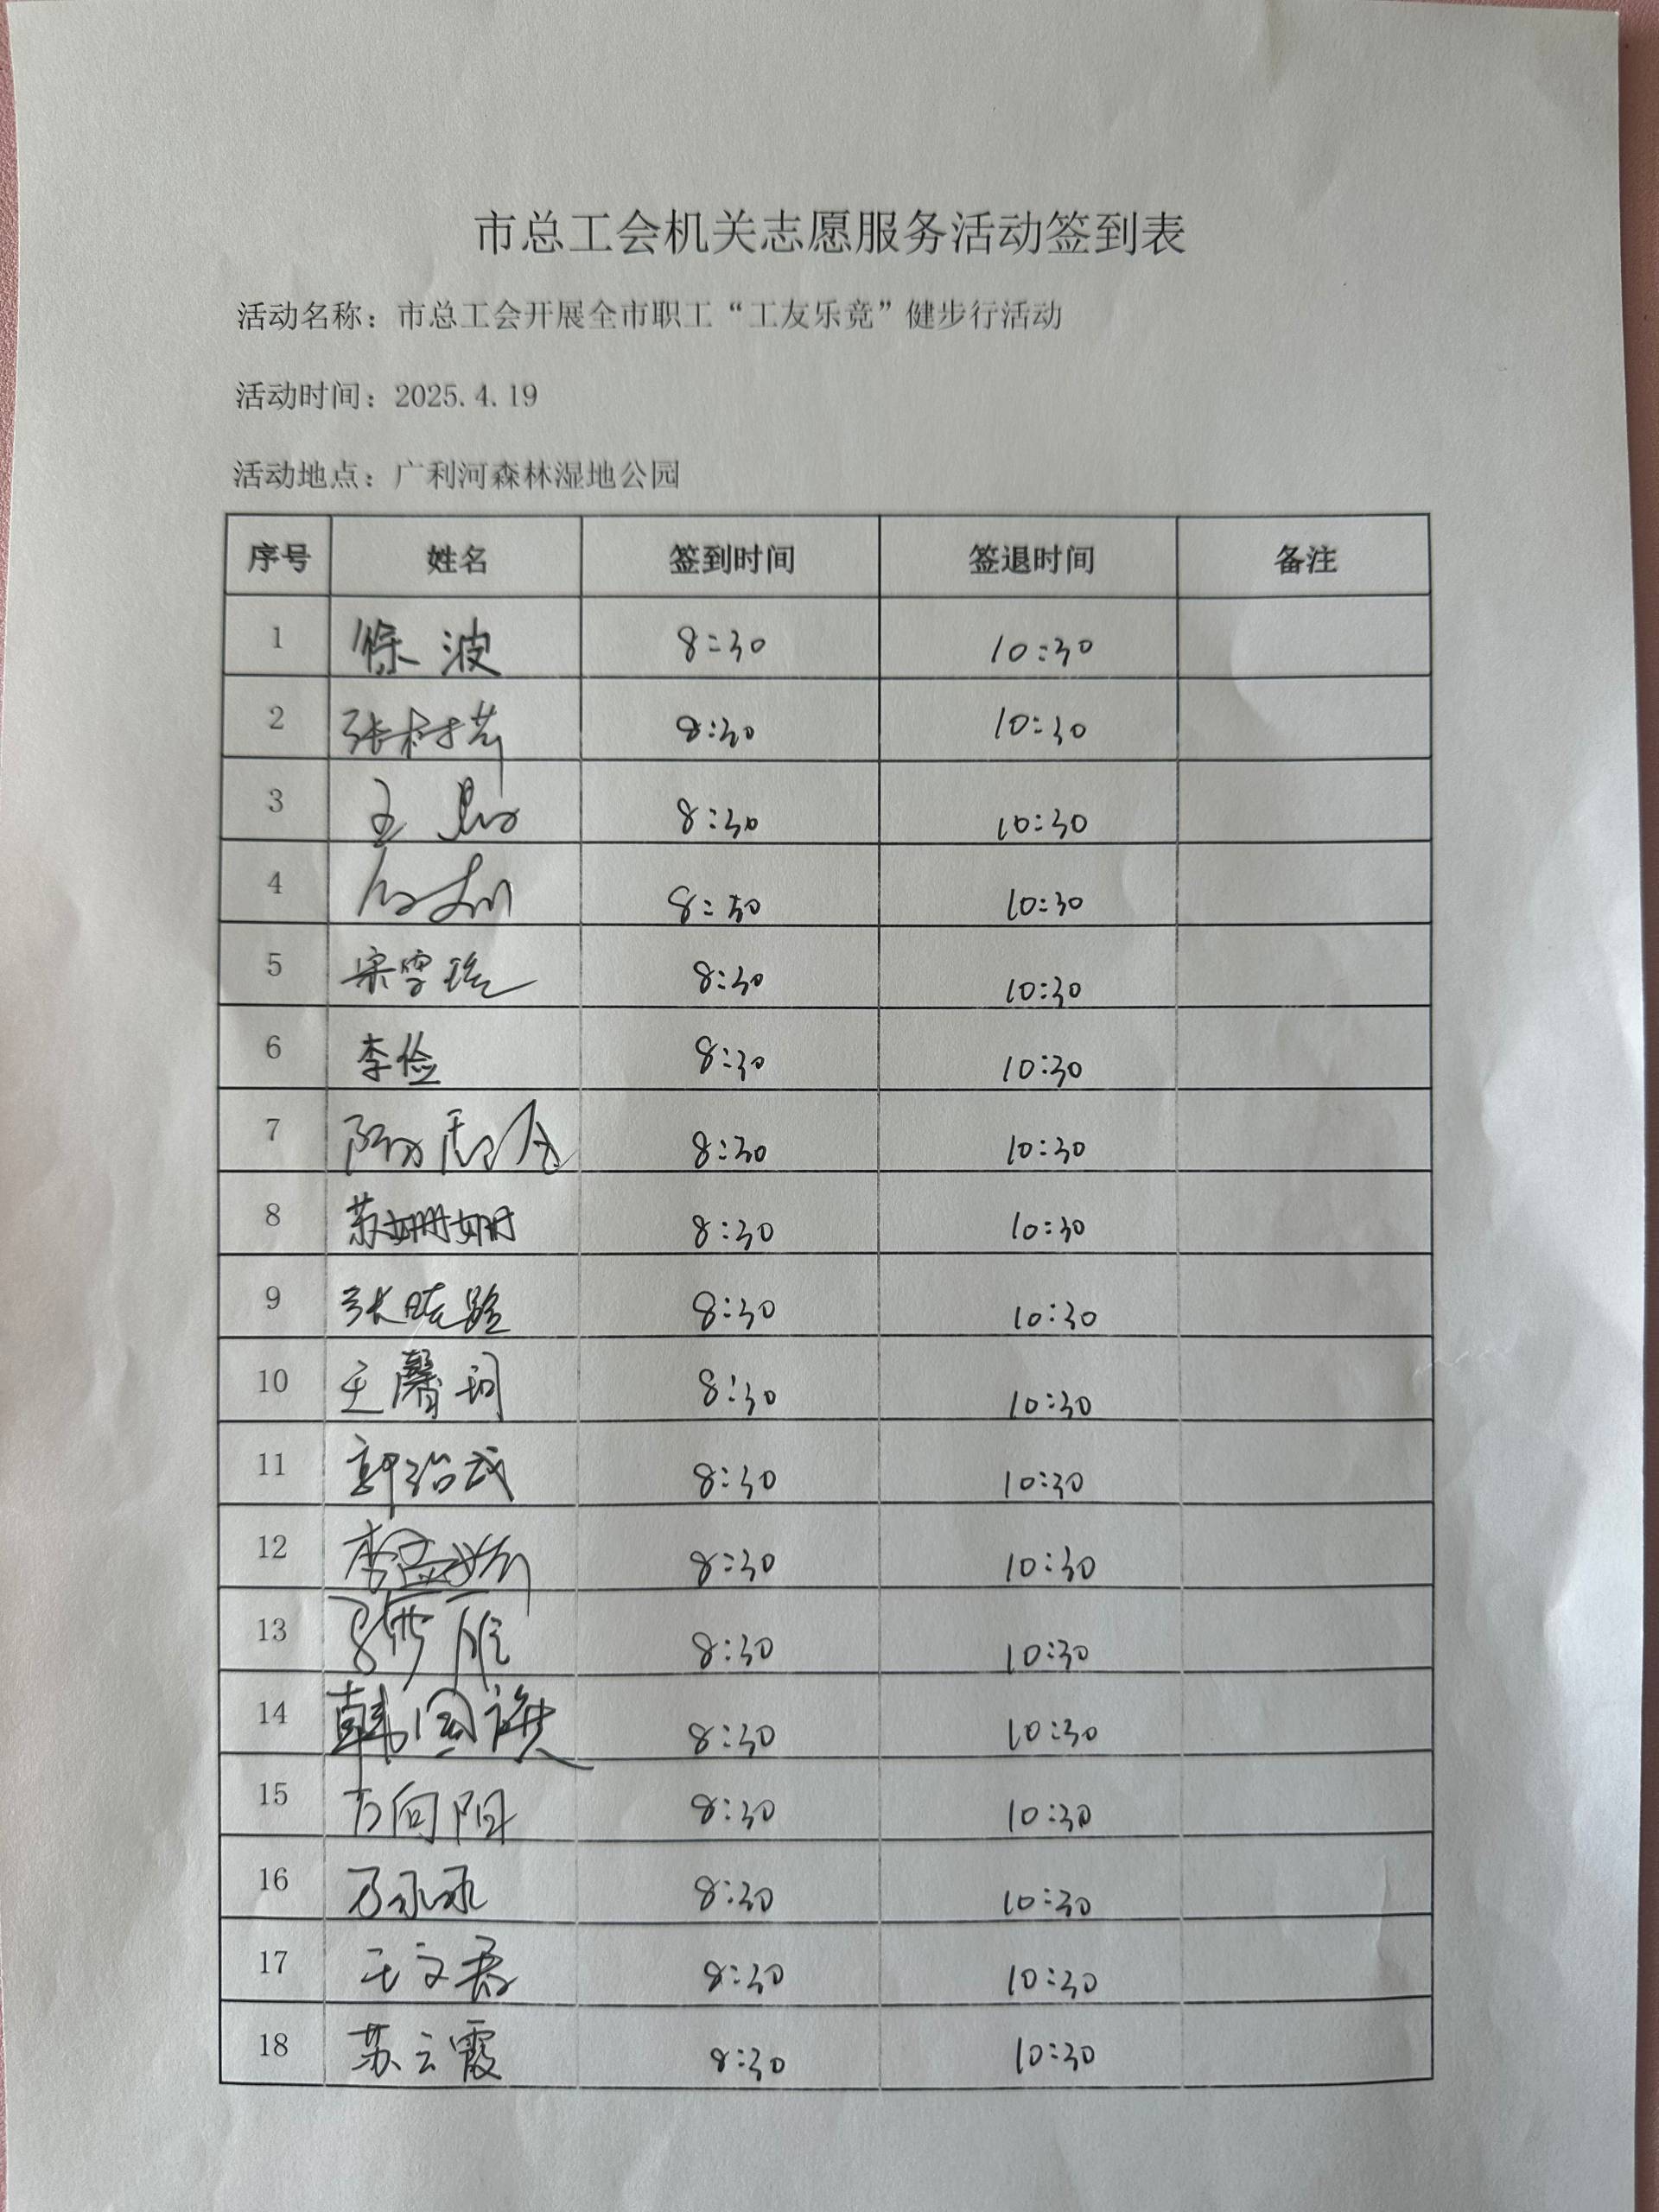 市总工会机关志愿服务活动签到表
活动名称：市总工会开展全市职工“工友乐竞”健步行活动
活动时间：2025.4.19
活动地点：广利河森林湿地公园
序号 姓名 签到时间 签退时间 备注
1 徐波 8:30 10:30
2 张树芸 8:30 10:30
3 王 8:30 10:30
4 8:30 10:30
5 宋雪瑶 8:30 10:30
6 李俭 8:30 10:30
7 8:30 10:30
8 苏姗姗 8:30 10:30
9 张晓路 8:30 10:30
10 王馨珂 8:30 10:30
11 郭治武 8:30 10:30
12 李孟 8:30 10:30
13 8:30 10:30
14 韩国 8:30 10:30
15 方向阳 8:30 10:30
16 8:30 10:30
17 王文君 8:30 10:30
18 苏云霞 8:30 10:30